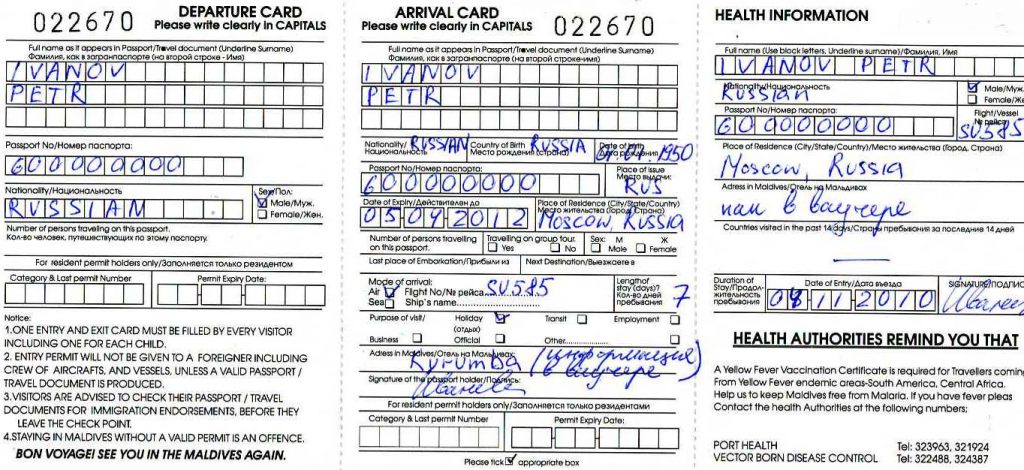 DEPARTURE CARD
Please write clearly in CAPITALS
022670
Full name as it appears in Passport/Travel document (Underline Surname)
Фамилия, как в загранпаспорте (на второй строке - Имя)
IVANOV
PETR
Passport No/Номер паспорта:
600000000
Nationality/Национальность
RUSSIAN
Sex/Пол:
Male/Муж.
Female/Жен.
Number of persons traveling on this passport.
Кол-во человек, путешествующих по этому паспорту.
For resident permit holders only/Заполняется только резидентом
Category & Last permit Number
Permit Expiry Date:
Notice:
1.ONE ENTRY AND EXIT CARD MUST BE FILLED BY EVERY VISITOR
INCLUDING ONE FOR EACH CHILD.
2. ENTRY PERMIT WILL NOT BE GIVEN TO A FOREIGNER INCLUDING
CREW OF AIRCRAFTS, AND VESSELS, UNLESS A VALID PASSPORT /
TRAVEL DOCUMENT IS PRODUCED.
3.VISITORS ARE ADVISED TO CHECK THEIR PASSPORT / TRAVEL
DOCUMENTS FOR IMMIGRATION ENDORSEMENTS, BEFORE THEY
LEAVE THE CHECK POINT.
4.STAYING IN MALDIVES WITHOUT A VALID PERMIT IS AN OFFENCE.
BON VOYAGE! SEE YOU IN THE MALDIVES AGAIN.
ARRIVAL CARD
Please write clearly in CAPITALS
022670
Full name as it appears in Passport/Travel document (Underline Surname)
Фамилия, как в загранпаспорте (на второй строке-имя)
IVANOV
PETR
Nationality/Национальность RUSSIAN
Country of Birth
Место рождения (страна) RUSSIA
Date of birth
Дата рождения 1950
Passport No/Номер паспорта:
600000000
Place of issue
Место выдачи:
RUS
Date of Expiry/Действителен до
05 09 2012
Place of Residence (City/State/Country)
Место жительства (Город, Страна)
Moscow, RUSSIA
Number of persons travelling
on this passport.
Travelling on group tour.
Yes No
Sex: М Ж
Male Female
Last place of Embarkation/Прибыли из
Next Destination/Выезжаете в
Mode of arrival:
Air Flight No/№ рейса SU585
Sea Ship's name
Length of
stay (days)?
Кол-во дней
пребывания
7
Purpose of visit/
Holiday
(отдых)
Transit
Employment
Business
Official
Other
Adress in Maldives/Отель на Мальдивах:
Kurumba (информация
в ваучере)
Signature of the passport holder/Подпись:
For resident permit holders only/Заполняется только резидентами
Category & Last permit Number
Permit Expiry Date:
Please tick appropriate box
HEALTH INFORMATION
Full name (Use black letters, Underline surname)/Фамилия, Имя
IVANOV PETR
Nationality/Национальность
RUSSIAN
Male/Муж.
Female/Же
Passport No/Номер паспорта:
600000000
Flight/Vessel
№ рейса
SU585
Place of Residence (City/State/Country)/Место жительства (Город, Страна)
Moscow, RUSSIA
Adress in Maldives/Отель на Мальдивах
как в ваучере
Countries visited in the past 14 days/Страны пребывания за последние 14 дней
Duration of
Stay/Продол-
жительность
пребывания
Date of Entry/Дата въезда
08 11 2010
SIGNATURE/ПОДПИС
HEALTH AUTHORITIES REMIND YOU THAT
A Yellow Fever Vaccination Certificate is required for Travellers coming
From Yellow Fever endemic areas-South America, Central Africa.
Help us to keep Maldives free from Malaria. If you have fever pleas
Contact the health Authorities at the following numbers;
PORT HEALTH Tel: 323963, 321924
VECTOR BORN DISEASE CONTROL Tel: 322488, 324387